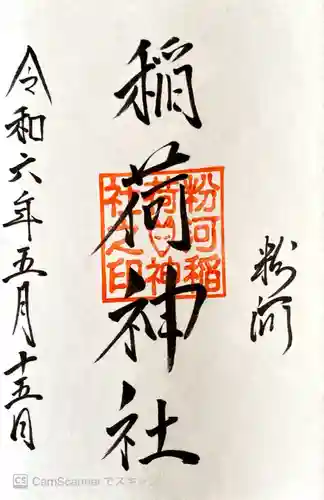 粉河
稲荷神社
粉河稲
荷神
社之印
令和六年五月十五日
CS CamScanner でスキャン